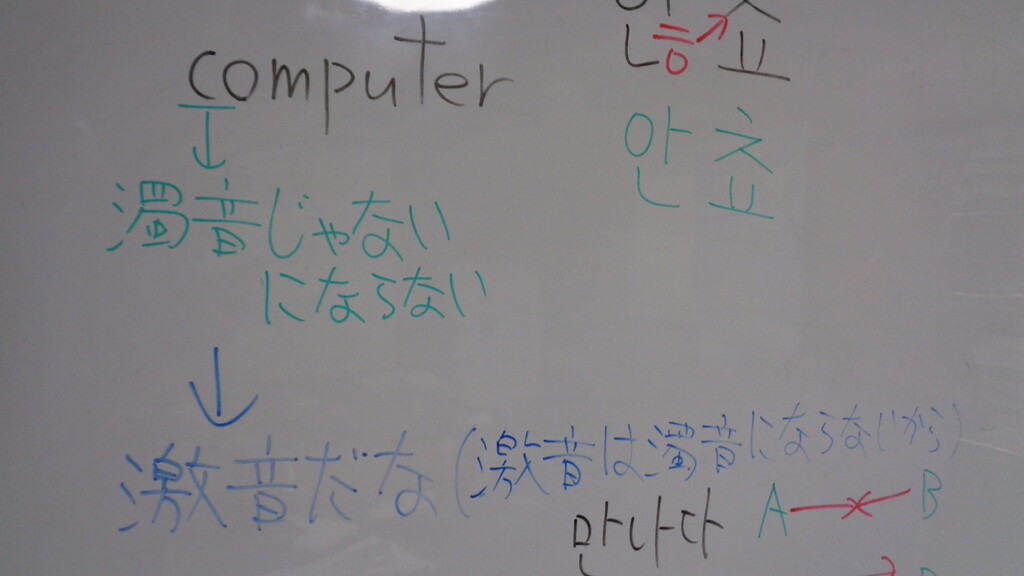 computer
濁音じゃない
にならない
激音だな(激音は濁音にならないから)
안 쵸
만나다
A
B